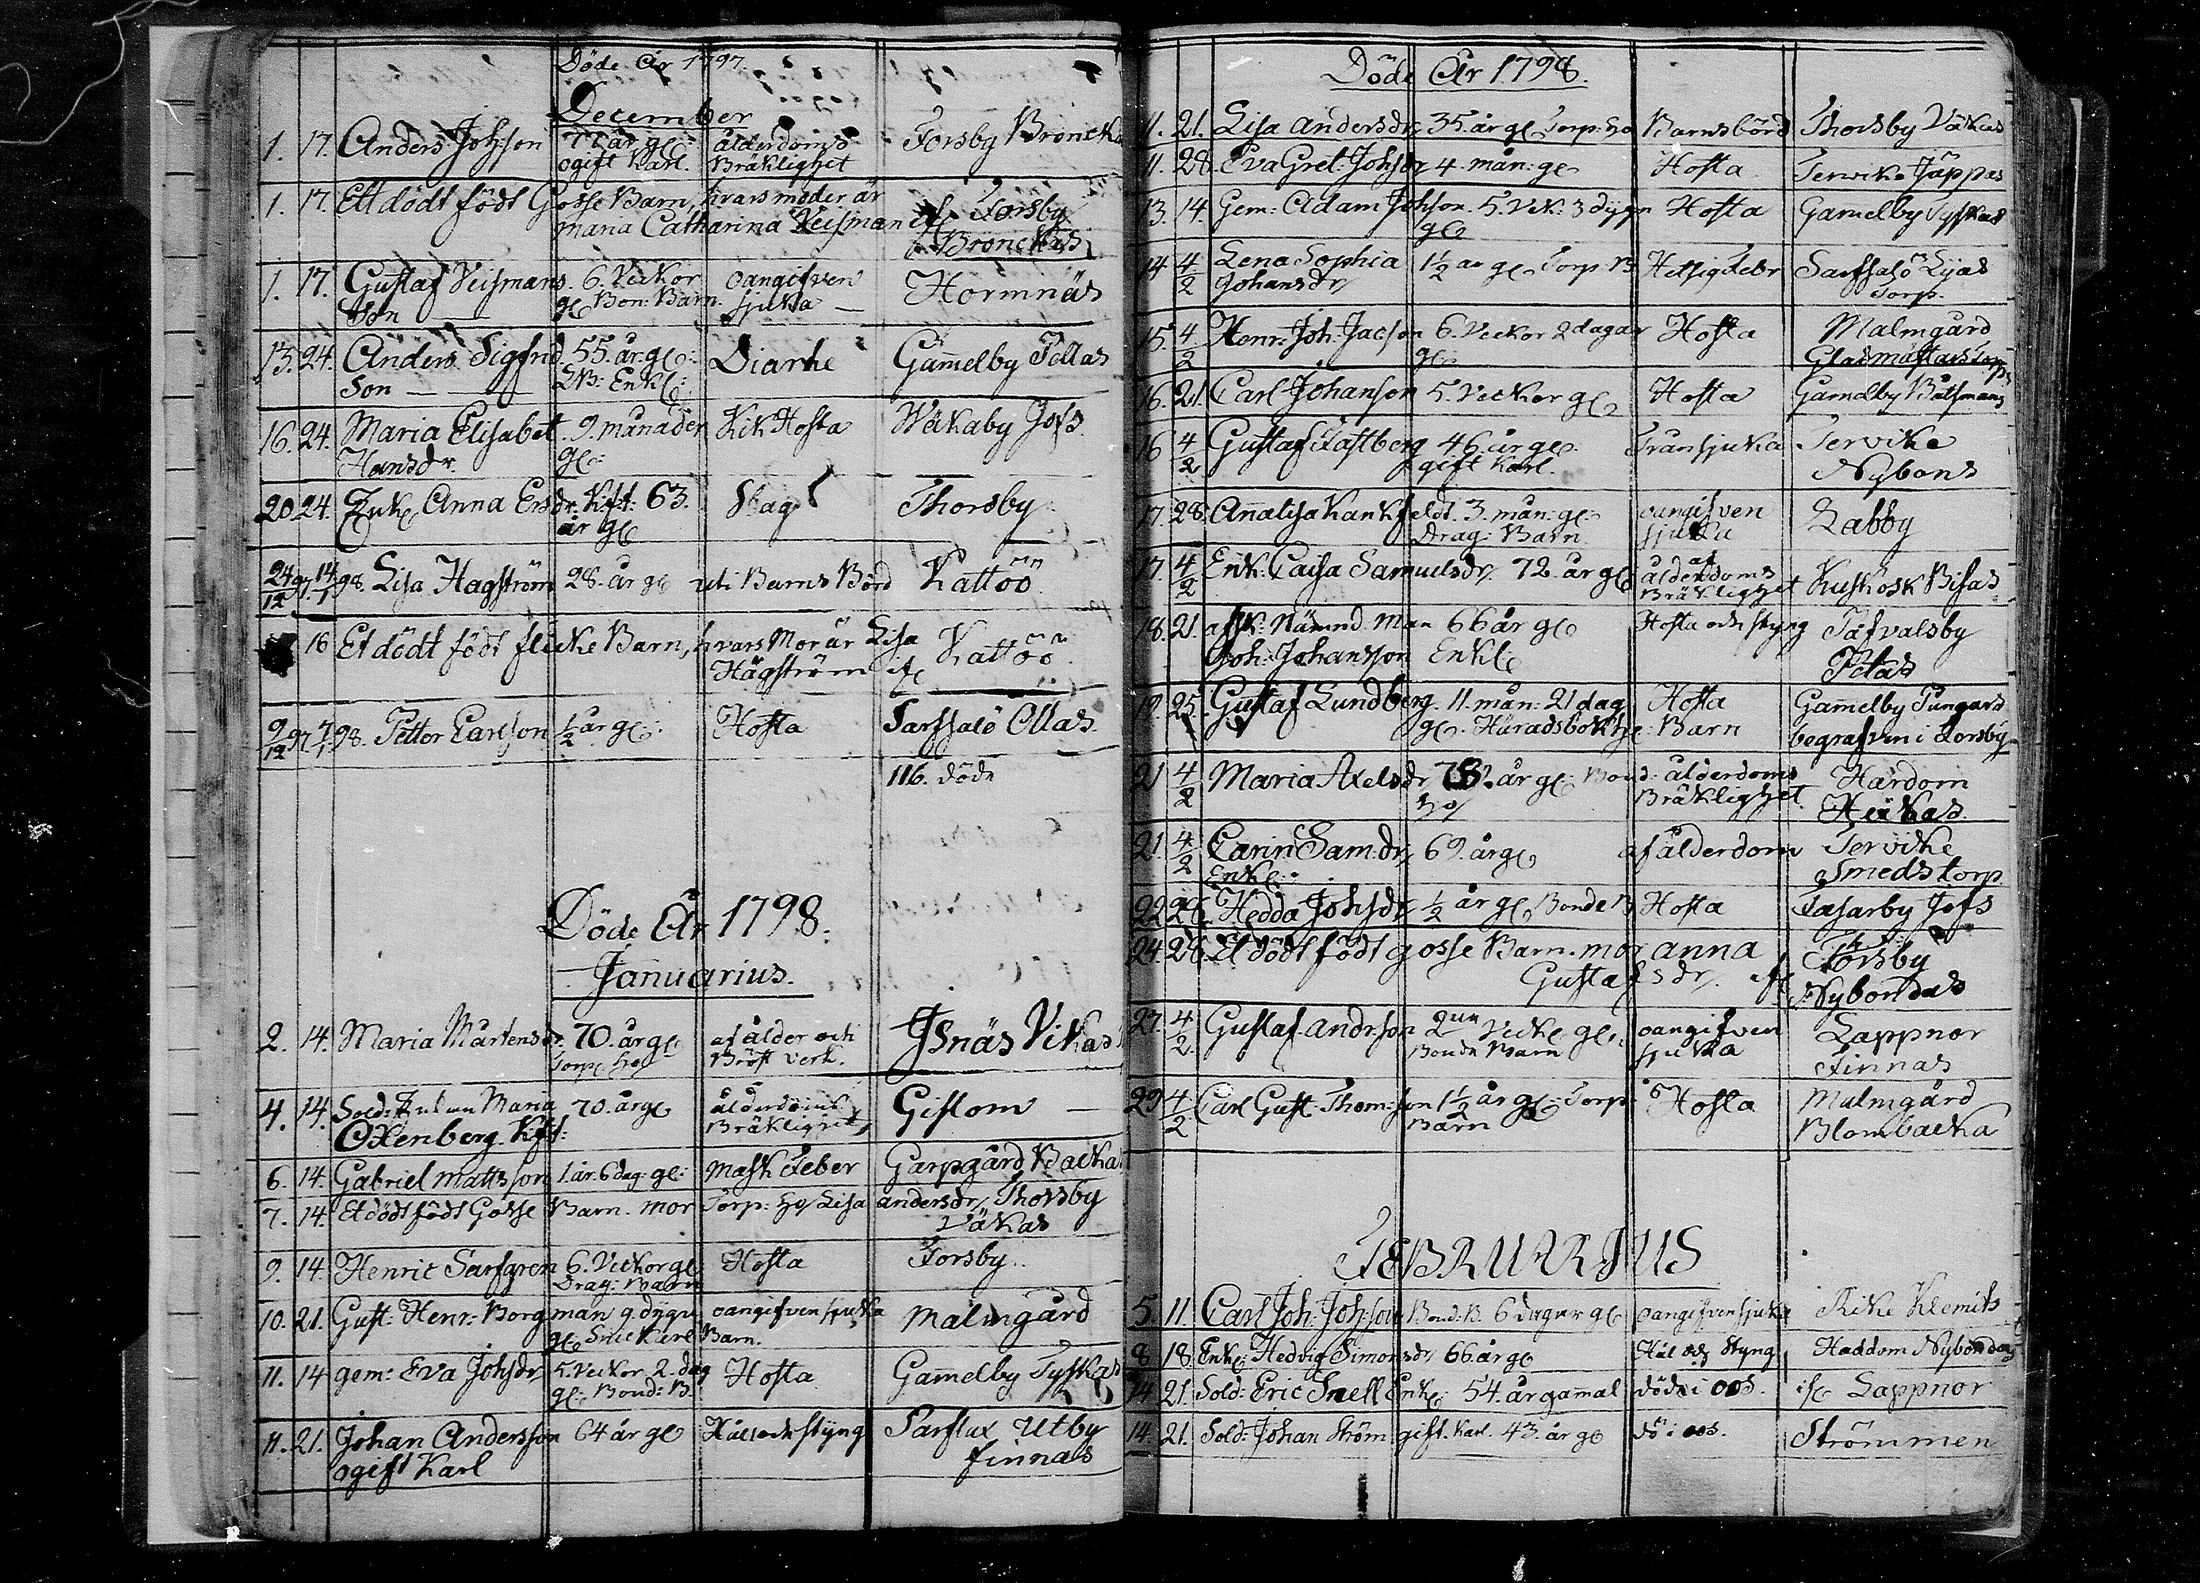 Döde År 1797.
December
1. 17. Anders Joh:son 77 år gl: ålderdoms Forsby Broncka
ogift Karl. Bräklighet
1. 17. Ett dödt födt Gosse Barn, hvars moder är
maria Catharina Veisman if Forsby
Bronckas
1. 17. Gustaf Veismans 6. Veckor oangifven Hormnäs
Son gl Bon: Barn. sjuka
13. 24. Anders Sigfrid 55. år. gl: Diarhe Gamelby Tellas
Son Enkl:
16. 24. Maria Elisabet 9. månader Kik Hosta Wåkaby Jofs
Hansdr. gl:
20 24. Enk: Anna Ersdr. Kyft: 63. Slag Thorsby
år gl
24/12 97. 14/1 98. Lisa Hagström 28. år gl uti Barns Börd Kattöö
16 Et dödt födt flicke Barn, hvars Mor är Lisa
Hägström if Kattöö
9/12 97 7/1 98. Petter Carlson 1/2 år gl: Hosta Sarfsalö Ollas.
116. döde
Döde År 1798.
Januarius.
2. 14. Maria Mårtensdr. 70. år gl af ålder och Isnäs Vikas
Torp: Bröst verk.
4. 14. Sold: Enkan Maria 70. år gl ålderdoms Gislom
Oxenberg. Kyft: Bräklighet
6. 14. Gabriel Mattsson 1. år. 6 dag: gl: Mask Feber Garpgård Backas
7. 14. Et dödt födt Gosse Barn. mor Torp: Lisa andersdr, Thorsby
Väkas
9. 14. Henric Sarfgren 6. Veckor gl Hosta Forsby.
Drag: Barn
10. 21. Gust: Henr: Borgman 9. dygn oangifven sjuka Malmgård
gl Barn.
11. 14 gem: Eva Johsdr, 5. Veckor 2. dag Hosta Gamelby Tyskas
gl: Bond: B.
11. 21. Johan Andersson 64 år gl Håll och styng Sarflax Utby
ogift Karl finnas
Döde År 1798.
11. 21. Lisa Andersdr, 35. år gl Torp: Barnsbörd Thorsby Väkas
11. 28. Eva Gret: Johsdr 4. mån: gl Hosta Tervike Jäppas
13. 14. Gem: Adam Johson. 5. Vek: 3 dygn Hosta Gamelby Tyskas
gl
14 4/2 Lena Sophia 1 1/2 år gl Torp B Hetsig Feber Sarfsalö Lyas
Johansdr, Torp.
15. 4/2 Henr: Joh: Jacson 6. Veckor 2 dagar Hosta Malmgård
gl Glasmästars torp
16. 21. Carl Johanson 5. Veckor gl Hosta Gamelby Båtsmans
16 4/2 Gustaf Fastberg 46. år gl. Transjuka Tervike
gift Karl. Nybons
17. 28. Analisa Kankfeldt. 3. mån: gl: oangifven Labby
Drag: Barn sjuka
17. 4/2 Enk: Caisa Samuelsdr, 72. år gl af
ålderdoms
Bräklighet Kuskosk Bisas
18. 21. afsk. Nämnd. Man 66 år gl Hosta och styng Tafvalsby
Joh: Johansson Enkl Petas
19. 25. Gustaf Lundberg. 11. mån: 21 dag Hosta Gamelby Pungars
gl. Häradsbok Barn begrafven i Forsby
21 4/2 Maria Axelsdr 78. år gl: Bond: ålderdoms Hardom
Bräklighet. Heikas.
21. 4/2 Carin Sam:dr, 69. år gl af ålderdom Tervike
Enkl: Smedstorp
22 28. Hedda Johsdr, 1/2 år gl Bonde B Hosta Fasarby Jofs
24. 28. Et dödt födt gosse Barn. mor anna Forsby
Gustafsdr. if Nybondas
27. 4/2. Gustaf. andrson 2 Vecke gl, oangifven Lappnor
Bonde Barn sjuka Finnas
29 4/2 Carl Gust: Thom:son 1 1/2 år gl: Torp: Hosta Malmgård
Barn Blombacka
FEBRUARIUS
5. 11. Carl Joh: Joh:son Bond: B. 6 dagar gl oangifven sjuka Rike Klemits
8 18. Enkl: Hedvig Simonsdr, 66. år gl Hål och Styng Haddom Nybondas
14 21. Sold: Eric Snell Enkl: 54. år gamal döde i oos. if Lappnor
14. 21. Sold: Johan Ström gift. Karl. 43. år gl dö i oos. Strömmen